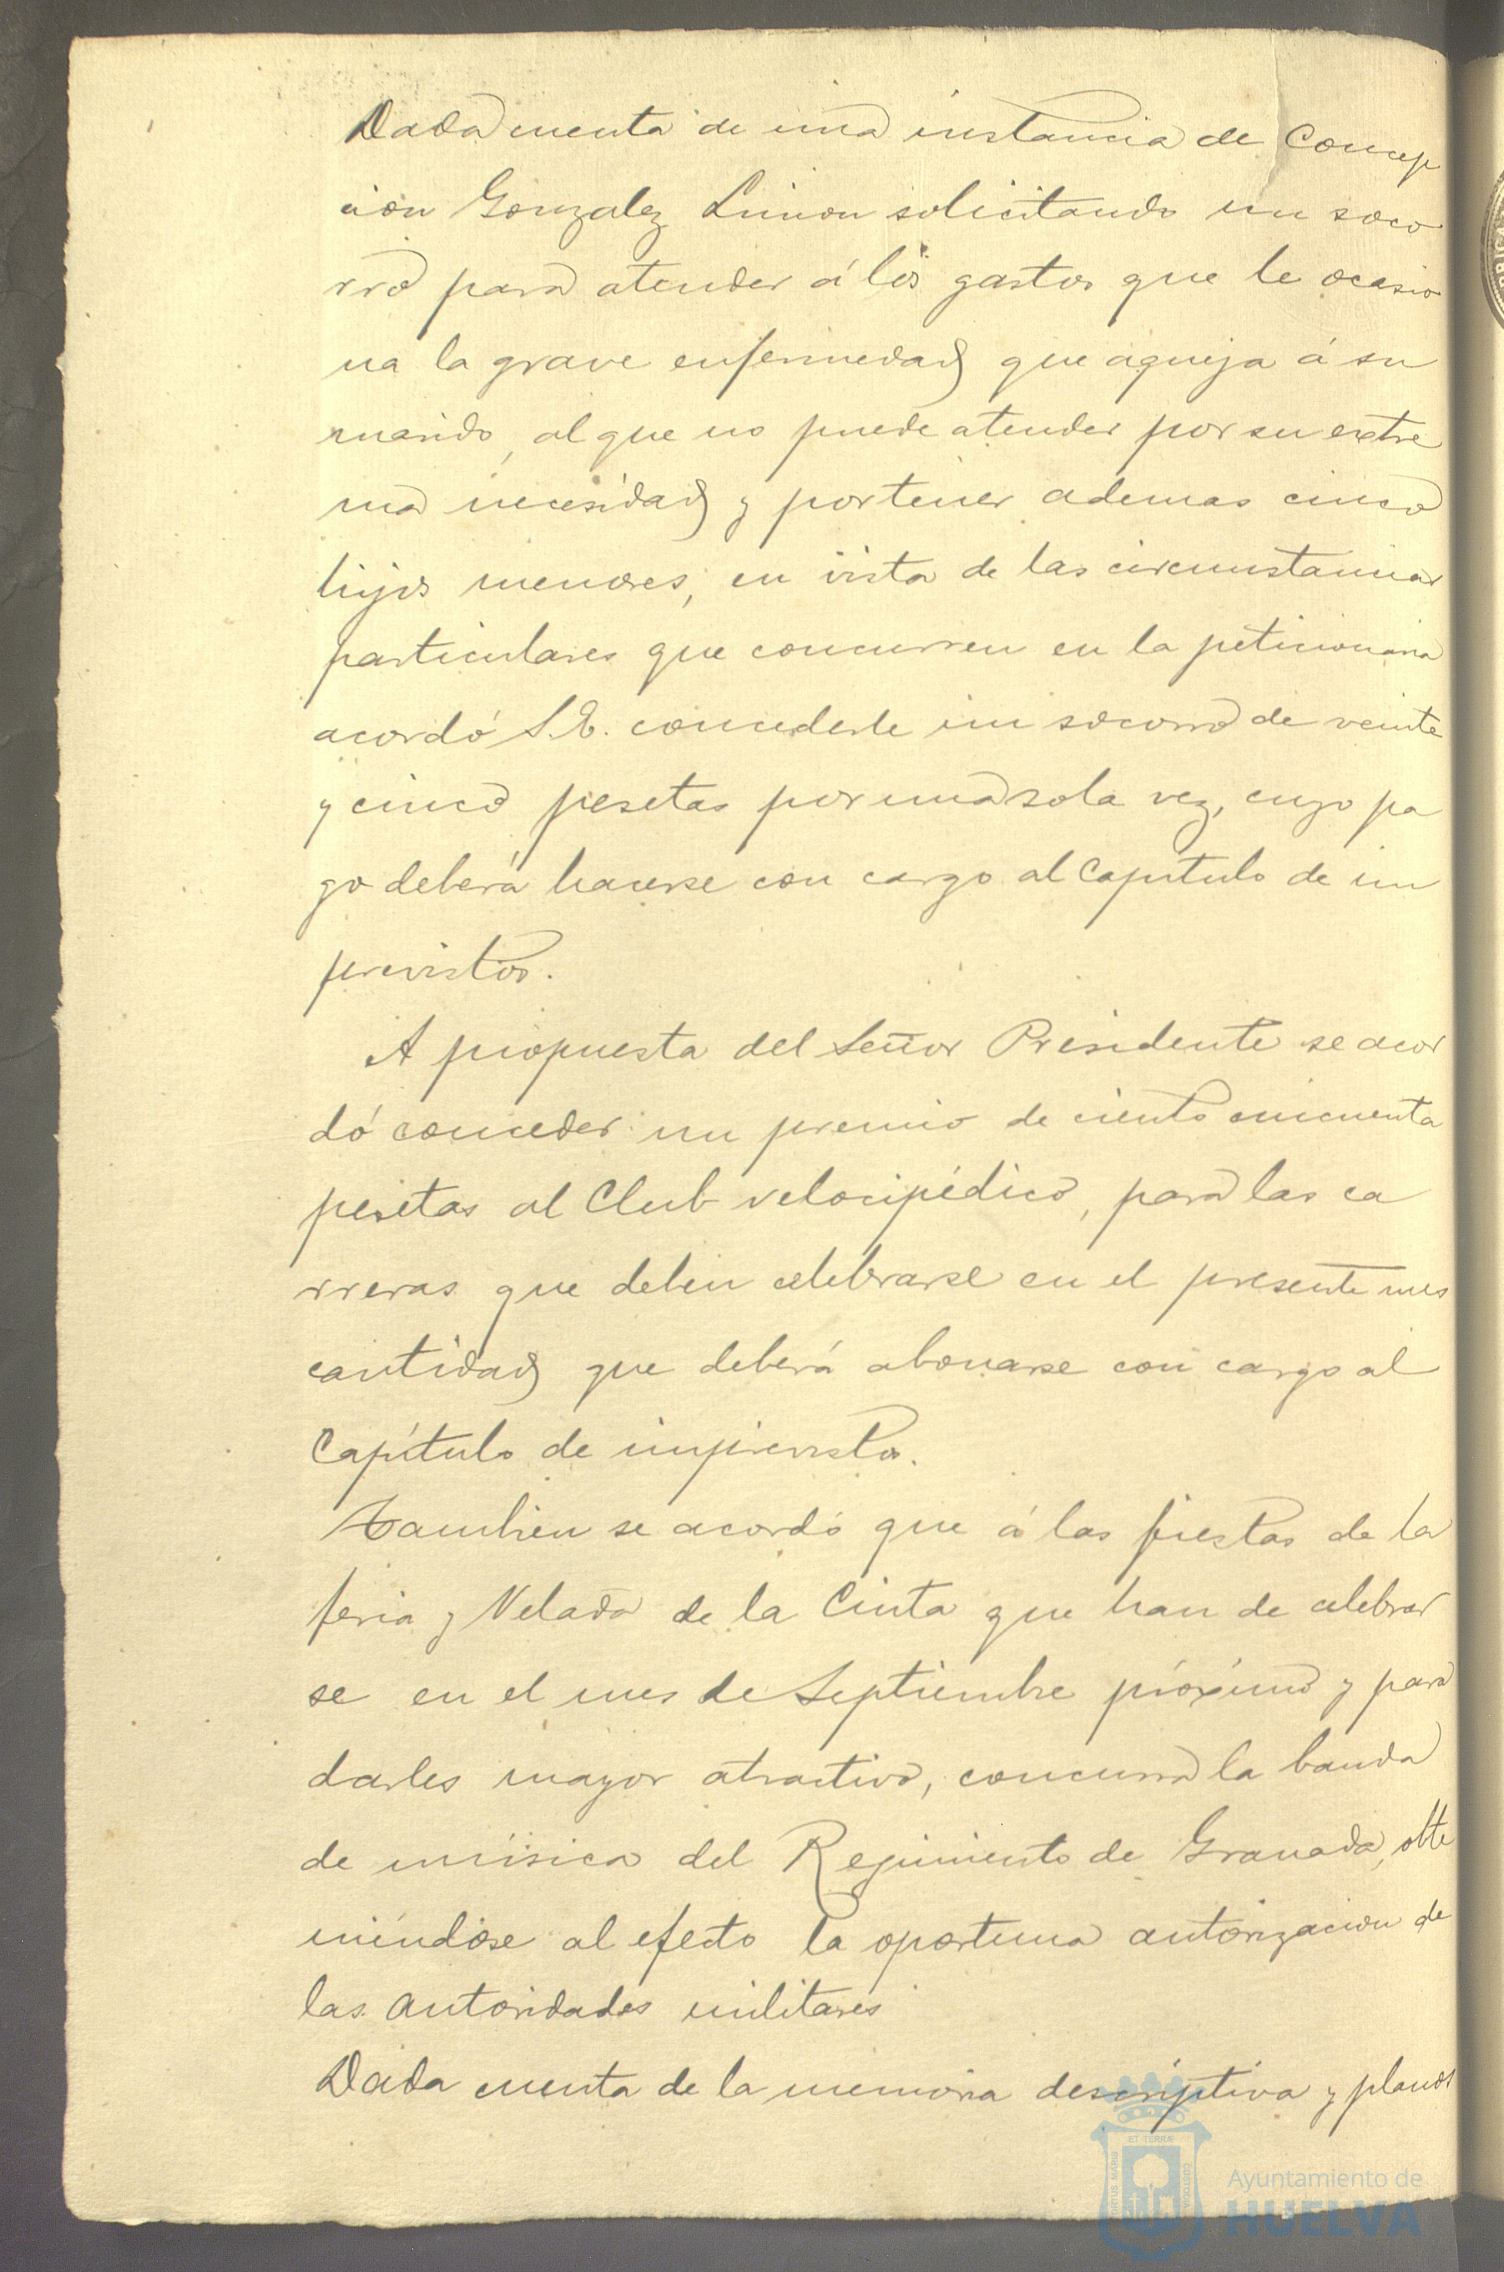 Dada cuenta de una instancia de Concep
cion Gonzalez Limon solicitando un soco
rro para atender á los gastos que le ocasio
na la grave enfermedad que aqueja á su
marido, al que no puede atender por su extre
ma necesidad y por tener ademas cinco
hijos menores, en vista de las circunstancias
particulares que concurren en la peticionaria
acordó S.E. concederle un socorro de veinte
y cinco pesetas por una sola vez, cuyo pa
go deberá hacerse con cargo al Capítulo de im
previstos.
A propuesta del Señor Presidente se acor
dó conceder un premio de ciento cincuenta
pesetas al Club velocipédico, para las ca
rreras que deben celebrarse en el presente mes
cantidad que deberá abonarse con cargo al
Capítulo de imprevistos.
Tambien se acordó que á las fiestas de la
feria y Velada de la Cinta que han de celebrar
se en el mes de Septiembre próximo y para
darles mayor atractivo, concurra la banda
de música del Regimiento de Granada, obte
niéndose al efecto la oportuna autorizacion de
las autoridades militares
Dada cuenta de la memoria descriptiva y planos
ET TERRÆ
Ayuntamiento de
HUELVA